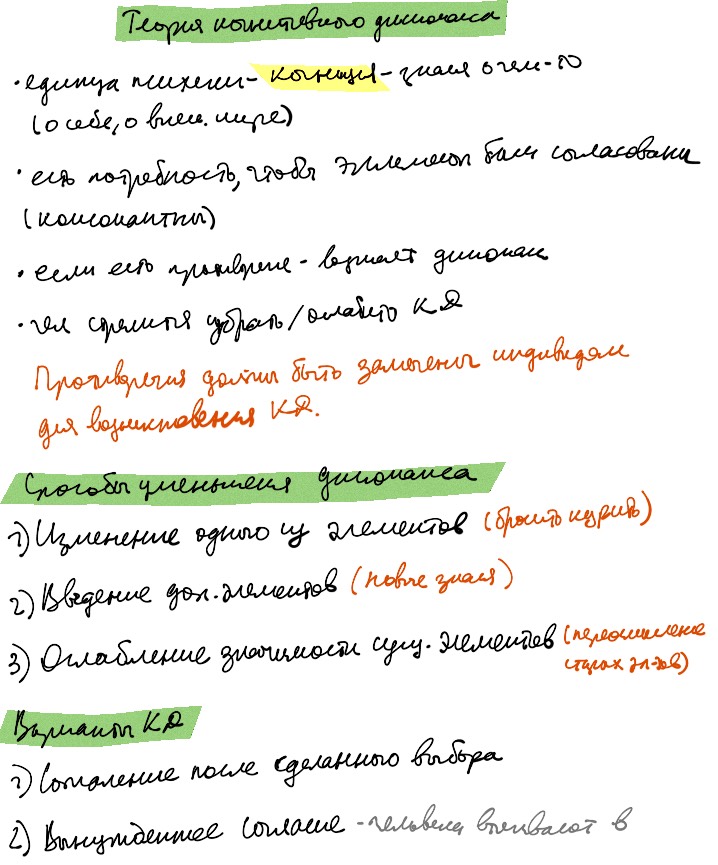 Теория когнитивного диссонанса
• единица психики - когниция - знания о чем-то
(о себе, о внеш. мире)
• есть потребность, чтобы элементы были согласованы
(консонантны)
• если есть противоречие - возникает диссонанс
• чел стремится убрать/ослабить КД
Противоречия должны быть замечены индивидом
для возникновения КД.
Способы уменьшения диссонанса
1) Изменение одного из элементов (бросить курить)
2) Введение доп. элементов (новые знания)
3) Ослабление значимости сущ. элементов (переосмысление
старых эл-тов)
Варианты КД
1) Сожаление после сделанного выбора
2) Вынужденное согласие - человека втягивают в